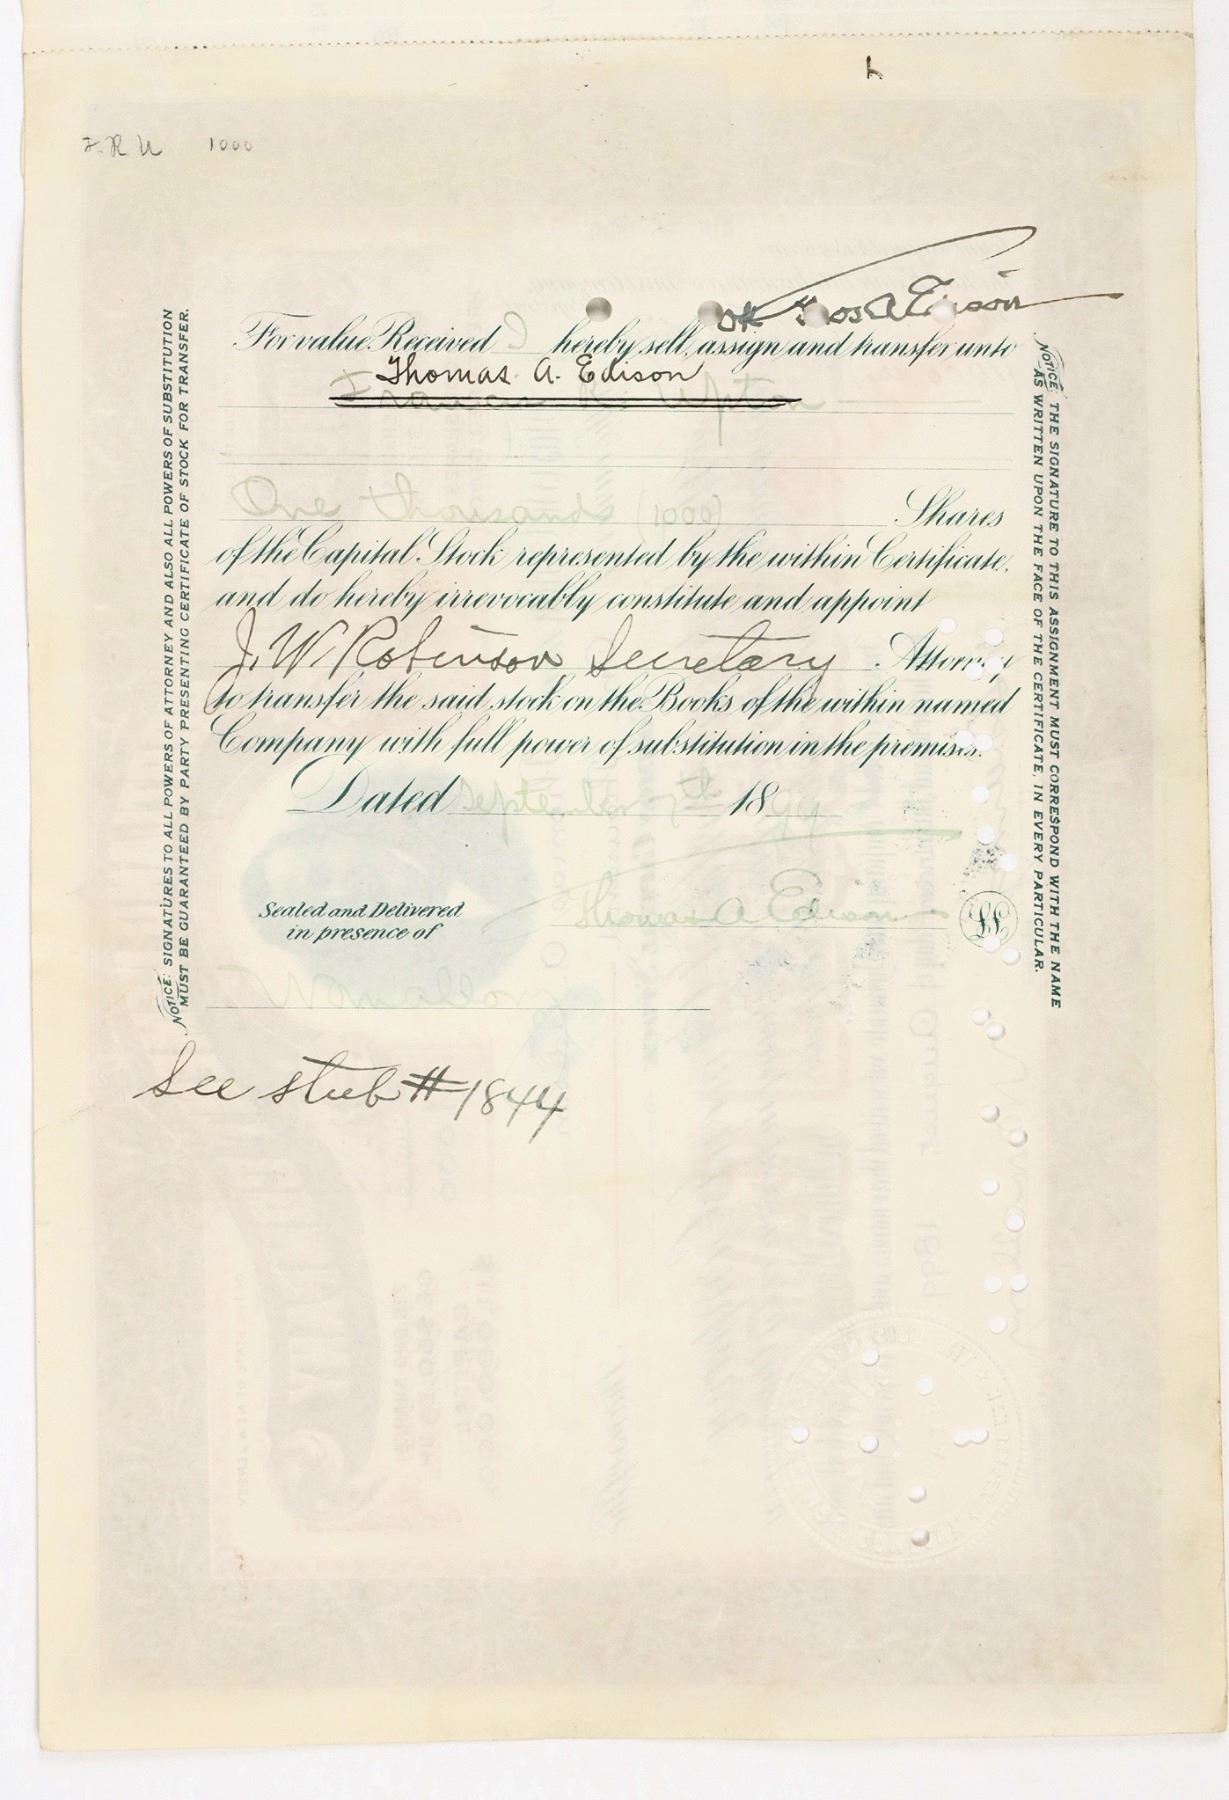 F. R. U 1000
OK Thos A Edison
For value Received I hereby sell, assign and transfer unto
Thomas A. Edison
Francis R. Upton
One thousand (1000) Shares
of the Capital Stock represented by the within Certificate,
and do hereby irrevocably constitute and appoint
J. W. Robinson Secretary Attorney
to transfer the said stock on the Books of the within named
Company with full power of substitution in the premises.
Dated September 7th 1899
Thomas A Edison
Sealed and Delivered
in presence of
See stub # 1844
NOTICE: SIGNATURES TO ALL POWERS OF ATTORNEY AND ALSO ALL POWERS OF SUBSTITUTION
MUST BE GUARANTEED BY PARTY PRESENTING CERTIFICATE OF STOCK FOR TRANSFER.
NOTICE: THE SIGNATURE TO THIS ASSIGNMENT MUST CORRESPOND WITH THE NAME
AS WRITTEN UPON THE FACE OF THE CERTIFICATE, IN EVERY PARTICULAR.